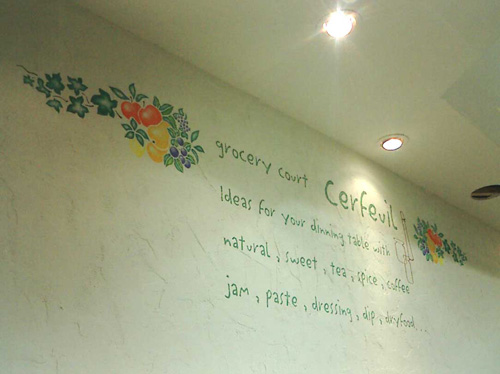 grocery court Cerfeuil
Ideas for your dinning table with
natural , sweet , tea , spice , coffee
jam , paste , dressing , dip , dryfood...